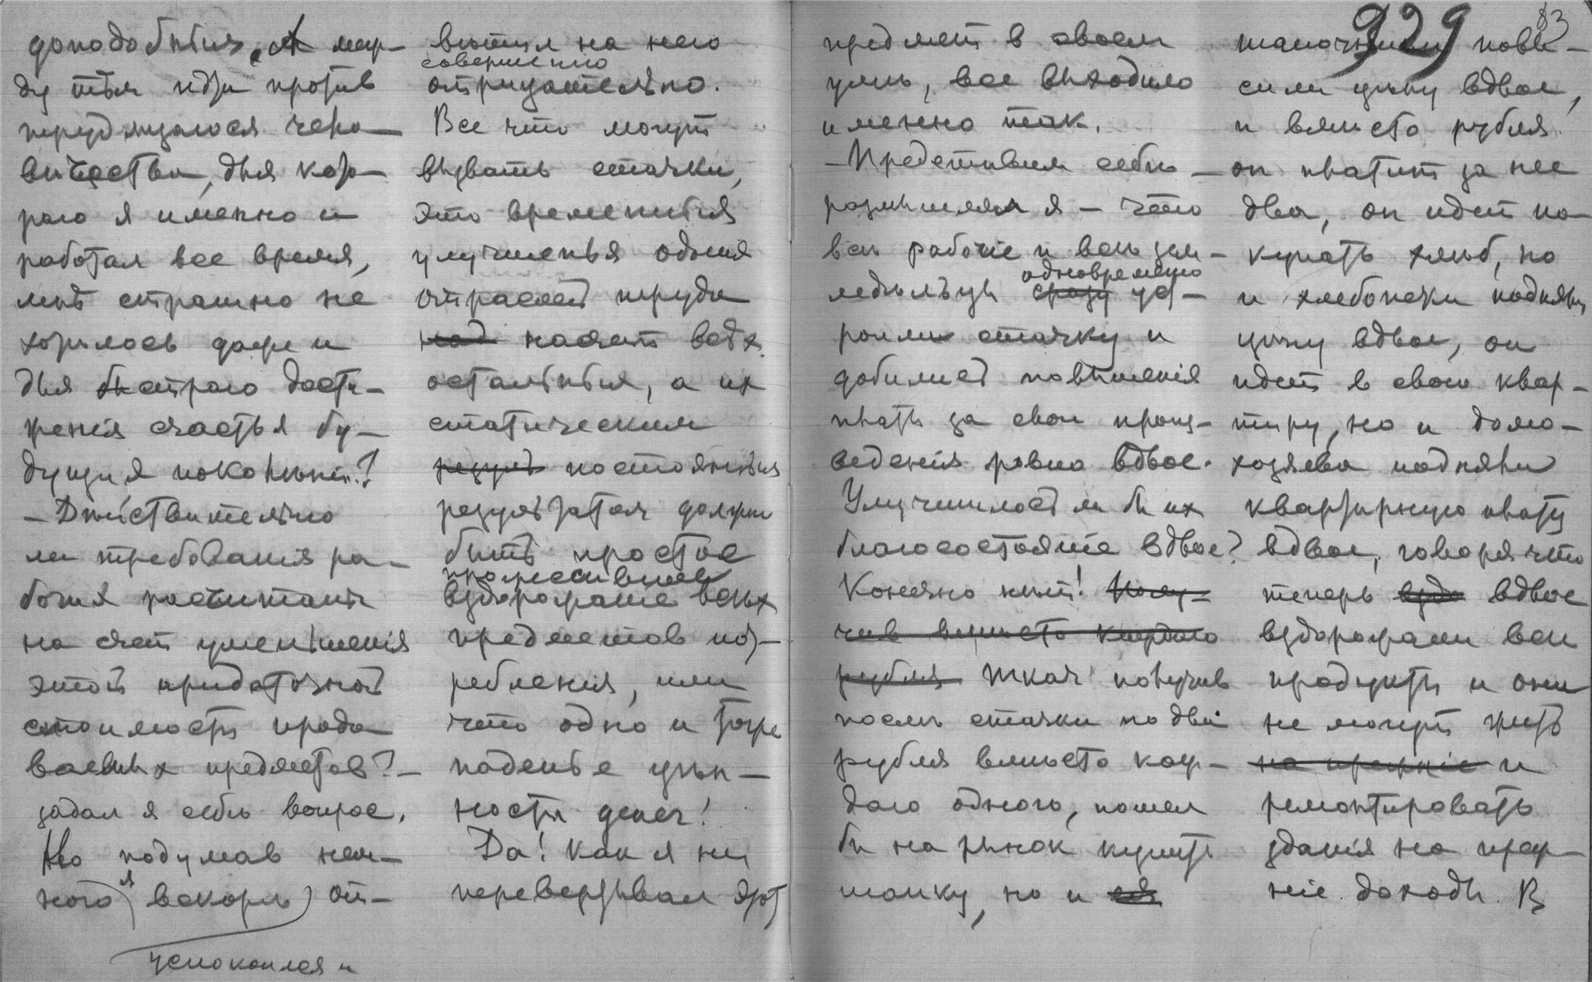 доподобныя. А меж-
ду тѣм идти против
трудящагося чело-
вѣчества, для кото-
раго я именно и
работал все время,
мнѣ страшно не
хотѣлось даже и
для быстраго дости-
женія счастья бу-
дущія поколѣній?
— Дѣйствительно
ли требованія ра-
бочія
на счет уменьшенія
этой придаточной
стоимости прода-
ваемых предметов? —
задал я себѣ вопрос.
Но подумав нем-
ного, я вскорѣ от-
успокоился и
вѣтил на него
совершенно
отрицательно.
Все что могут
вызвать стачки,
это временныя
улучшенья одной
отраслей труда
над насчет всѣх
остальныя, а их
статическим
резуль постоянныя
результатом должно
быть простое
прогрессивное
вздорожаніе всѣх
предметов пот-
ребленія, или
что одно и тоже
паденье цѣн-
ности денег!
Да! Как я ни
перевертывал этот
предмет в своем
умѣ, все выходило
именно так.
— Представим себѣ —
размышлял я — что
всѣ рабочіе и всѣ зем-
одновременно
ледѣльцы сразу уст-
роили стачку и
добились повышенія
платы за свои произ-
веденія ровно вдвое.
Улучшилось ли бы их
благосостояніе вдвое?
Конечно нѣт! Полу-
чив вмѣсто каждаго
рубля Ткач получив
послѣ стачки по два
рубля вмѣсто каж-
даго одного, пошел
бы на рынок купить
шапку, но и ея
929
83
шапочники повы-
сили цѣну вдвое,
и вмѣсто рубля
он платит за нее
два, он идет по-
купать хлѣб, но
и хлебопеки подняли
цѣну вдвое, он
идет в свою квар-
тиру, но и домо-
хозяева подняли
квартирную плату
вдвое, говоря что
теперь вздо вдвое
вздорожали все
продукты и они
не могут жить
на прежніе и
ремонтировать
зданія на преж-
ніе доходы. В